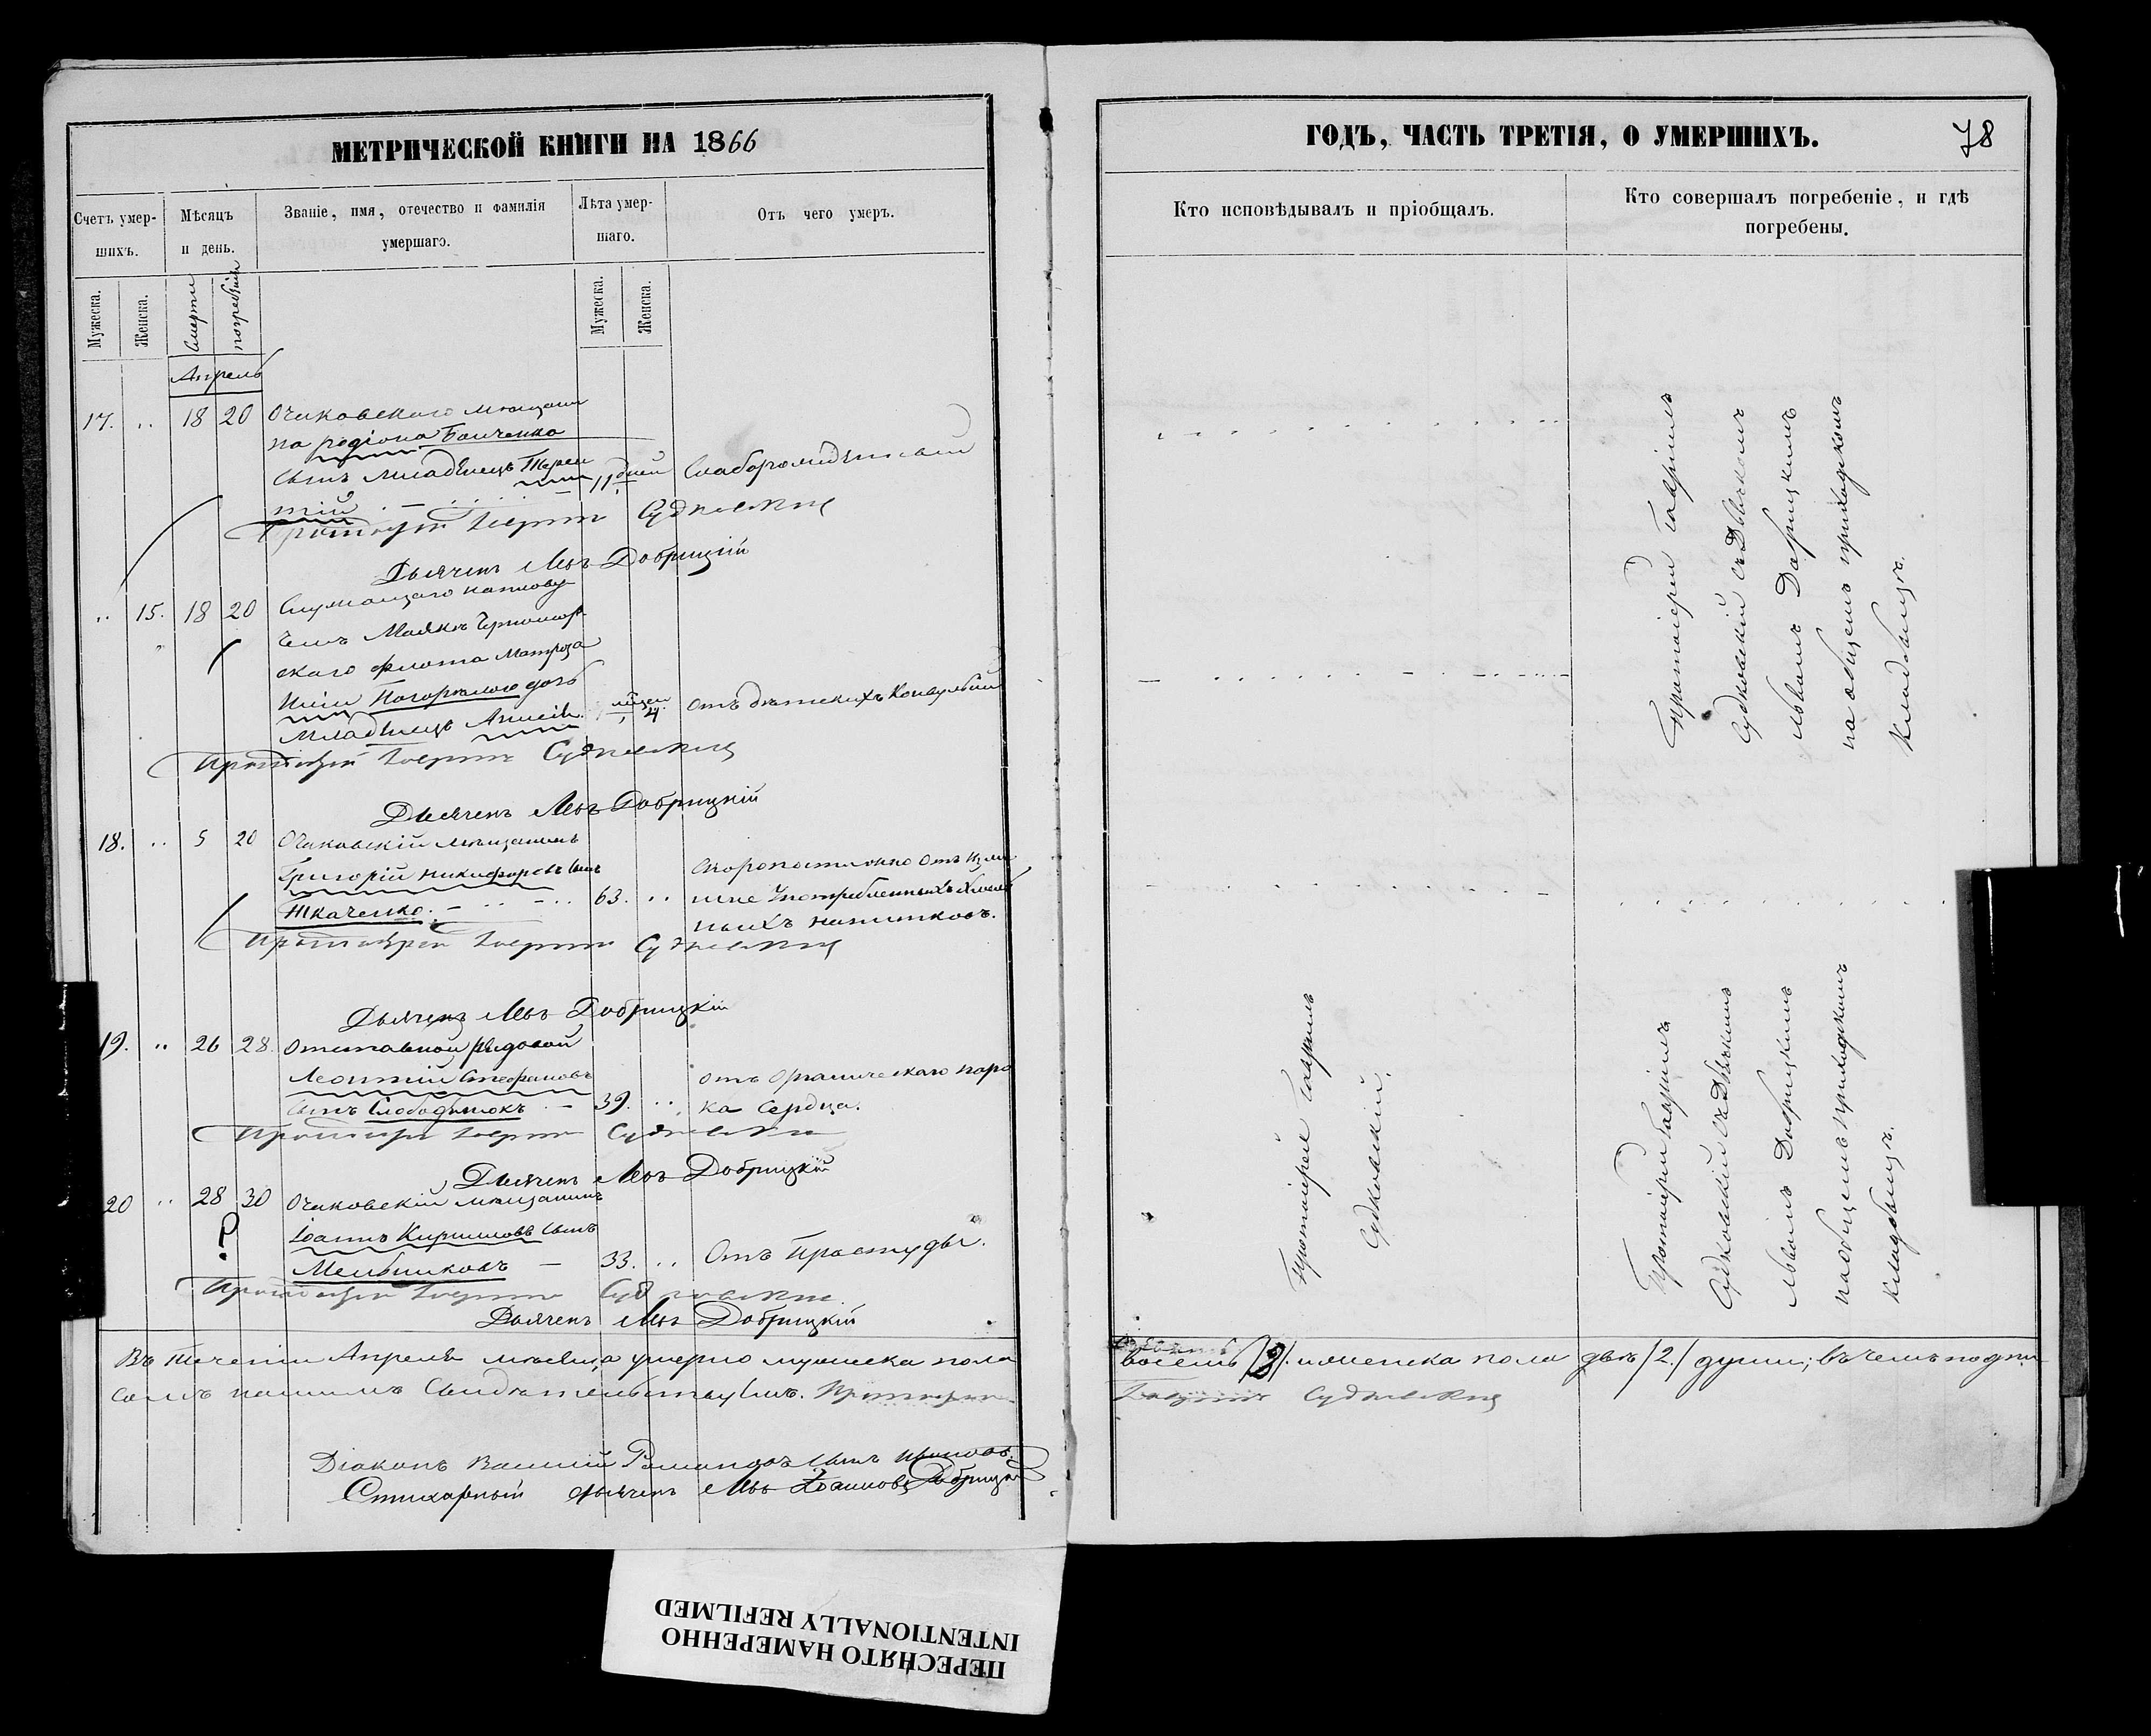 МЕТРИЧЕСКОЙ КНИГИ НА 1866
Счетъ умер-
шихъ.
Мѣсяцъ
и день.
Званіе, имя, отечество и фамилія
умершаго.
Лѣта умер-
шаго.
Отъ чего умеръ.
Мужеска.
Женска.
Смерти
погребенія
Мужеска.
Женска.
Апрель
17. .. 18 20 Очаковскаго мѣщани
на родіона Банченка
сынъ младенецъ Терен 11 дней
тій
Протоіерей Гавріилъ Судковскій
Дьячекъ Левъ Добрицкій
.. 15. 18 20 Служащаго на плову
чемъ Маякѣ Черномор
скаго флота Матроза
Погорѣлаго дочь
младенецъ 4 отъ дѣтскихъ Конвульсій
Протоіерей Гавріилъ Судковскій
Дьячекъ Левъ Добрицкій
18. .. 5 20 Очаковскій мѣщанинъ
Григорій Никифоровъ сынъ Скоропостижно отъ изли
Ткаченко. 63. .. шне Употребленныхъ хмель
ныхъ напитковъ.
Протоіерей Гавріилъ Судковскій
Дьячекъ Левъ Добрицкій
19. .. 26 28. Отставной рядовой
Леонтій Стефановъ отъ Органическаго поро
сынъ Слободянюкъ 39. .. ка Сердца.
Протоіерей Гавріилъ Судковскій
Дьячекъ Левъ Добрицкій
20 .. 28 30 Очаковскій мѣщанинъ
? Іоаннъ Кирилловъ сынъ
Мельниковъ 33. .. Отъ Простуды.
Протоіерей Гавріилъ Судковскій
Дьячекъ Левъ Добрицкій
Въ теченіи Апреля мѣсяца умерло мужеска пола
самъ нашимъ Свидѣтельствуемъ. Протоіерей
Діаконъ Василій Романовъ сынъ
Стихарный дьячекъ Левъ Іоанновъ Добрицкій
ГОДЪ, ЧАСТЬ ТРЕТІЯ, О УМЕРШИХЪ.
78
Кто исповѣдывалъ и пріобщалъ.
Кто совершалъ погребеніе, и гдѣ
погребены.
Протоіерей Гавріилъ
Судковскій съ Дьячкомъ
Львомъ Добрицкимъ
на общемъ приходскомъ
кладбищѣ.
Протоіерей Гавріилъ
Судковскій.
Протоіерей Гавріилъ
Судковскій съ Дьячкомъ
Львомъ Добрицкимъ
на общемъ приходскомъ
кладбищѣ.
восемь /8/. женска пола двѣ /2./ души; въ чемъ подпи
Гавріилъ Судковскій
ПЕРЕСНЯТО НАМЕРЕННО
INTENTIONALLY REFILMED